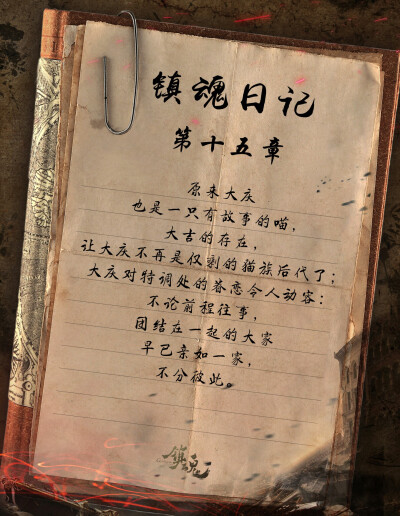 镇魂日记
第十五章
原来大庆
也是一只有故事的喵，
大吉的存在，
让大庆不再是仅剩的猫族后代了；
大庆对特调处的眷恋令人动容：
不论前程往事，
团结在一起的大家
早已亲如一家，
不分彼此。
镇魂